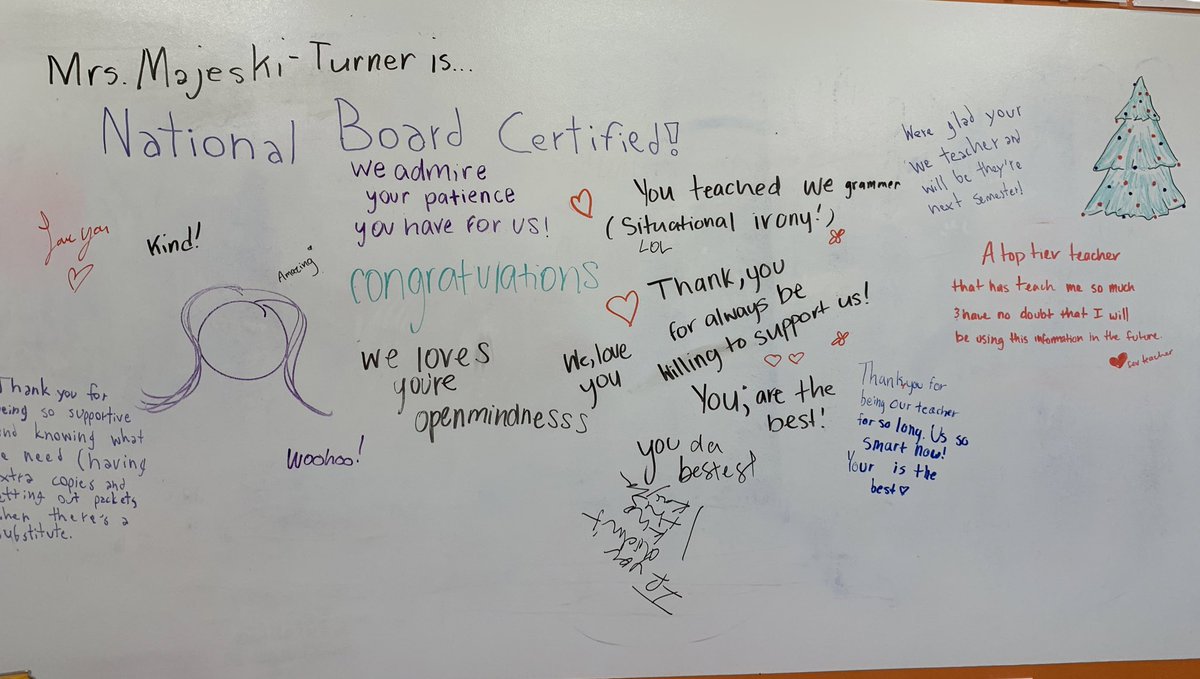 Mrs. Majeski-Turner is...
National Board Certified!
We admire
your patience
you have for us!
Love you
Kind!
Amazing
congratulations
You teached we grammer
(Situational irony!)
LOL
Were glad your
we teacher and
will be they're
next semester!
A top tier teacher
that has teach me so much
& have no doubt that I will
be using this information in the future.
fav teacher
Thank, you
for always be
willing to support us!
We, love
you
we loves
you're
openmindnesss
You; are the
best!
Thank, you for
being our teacher
for so long. Us so
smart now!
Your is the
best
you da
bestest
Woohoo!
Thank you for
being so supportive
and knowing what
we need (having
extra copies and
etting out packets
when there's a
substitute.